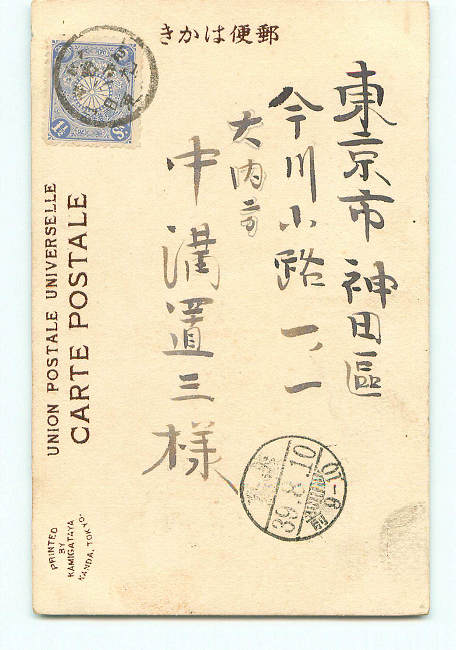 郵便はかき
東京市神田區
今川小路一ノ一
大内方
中溝置三様
UNION POSTALE UNIVERSELLE
CARTE POSTALE
PRINTED
BY
KAMIGATAYA
KANDA, TOKYO.
1½ Sn.
39.8.10